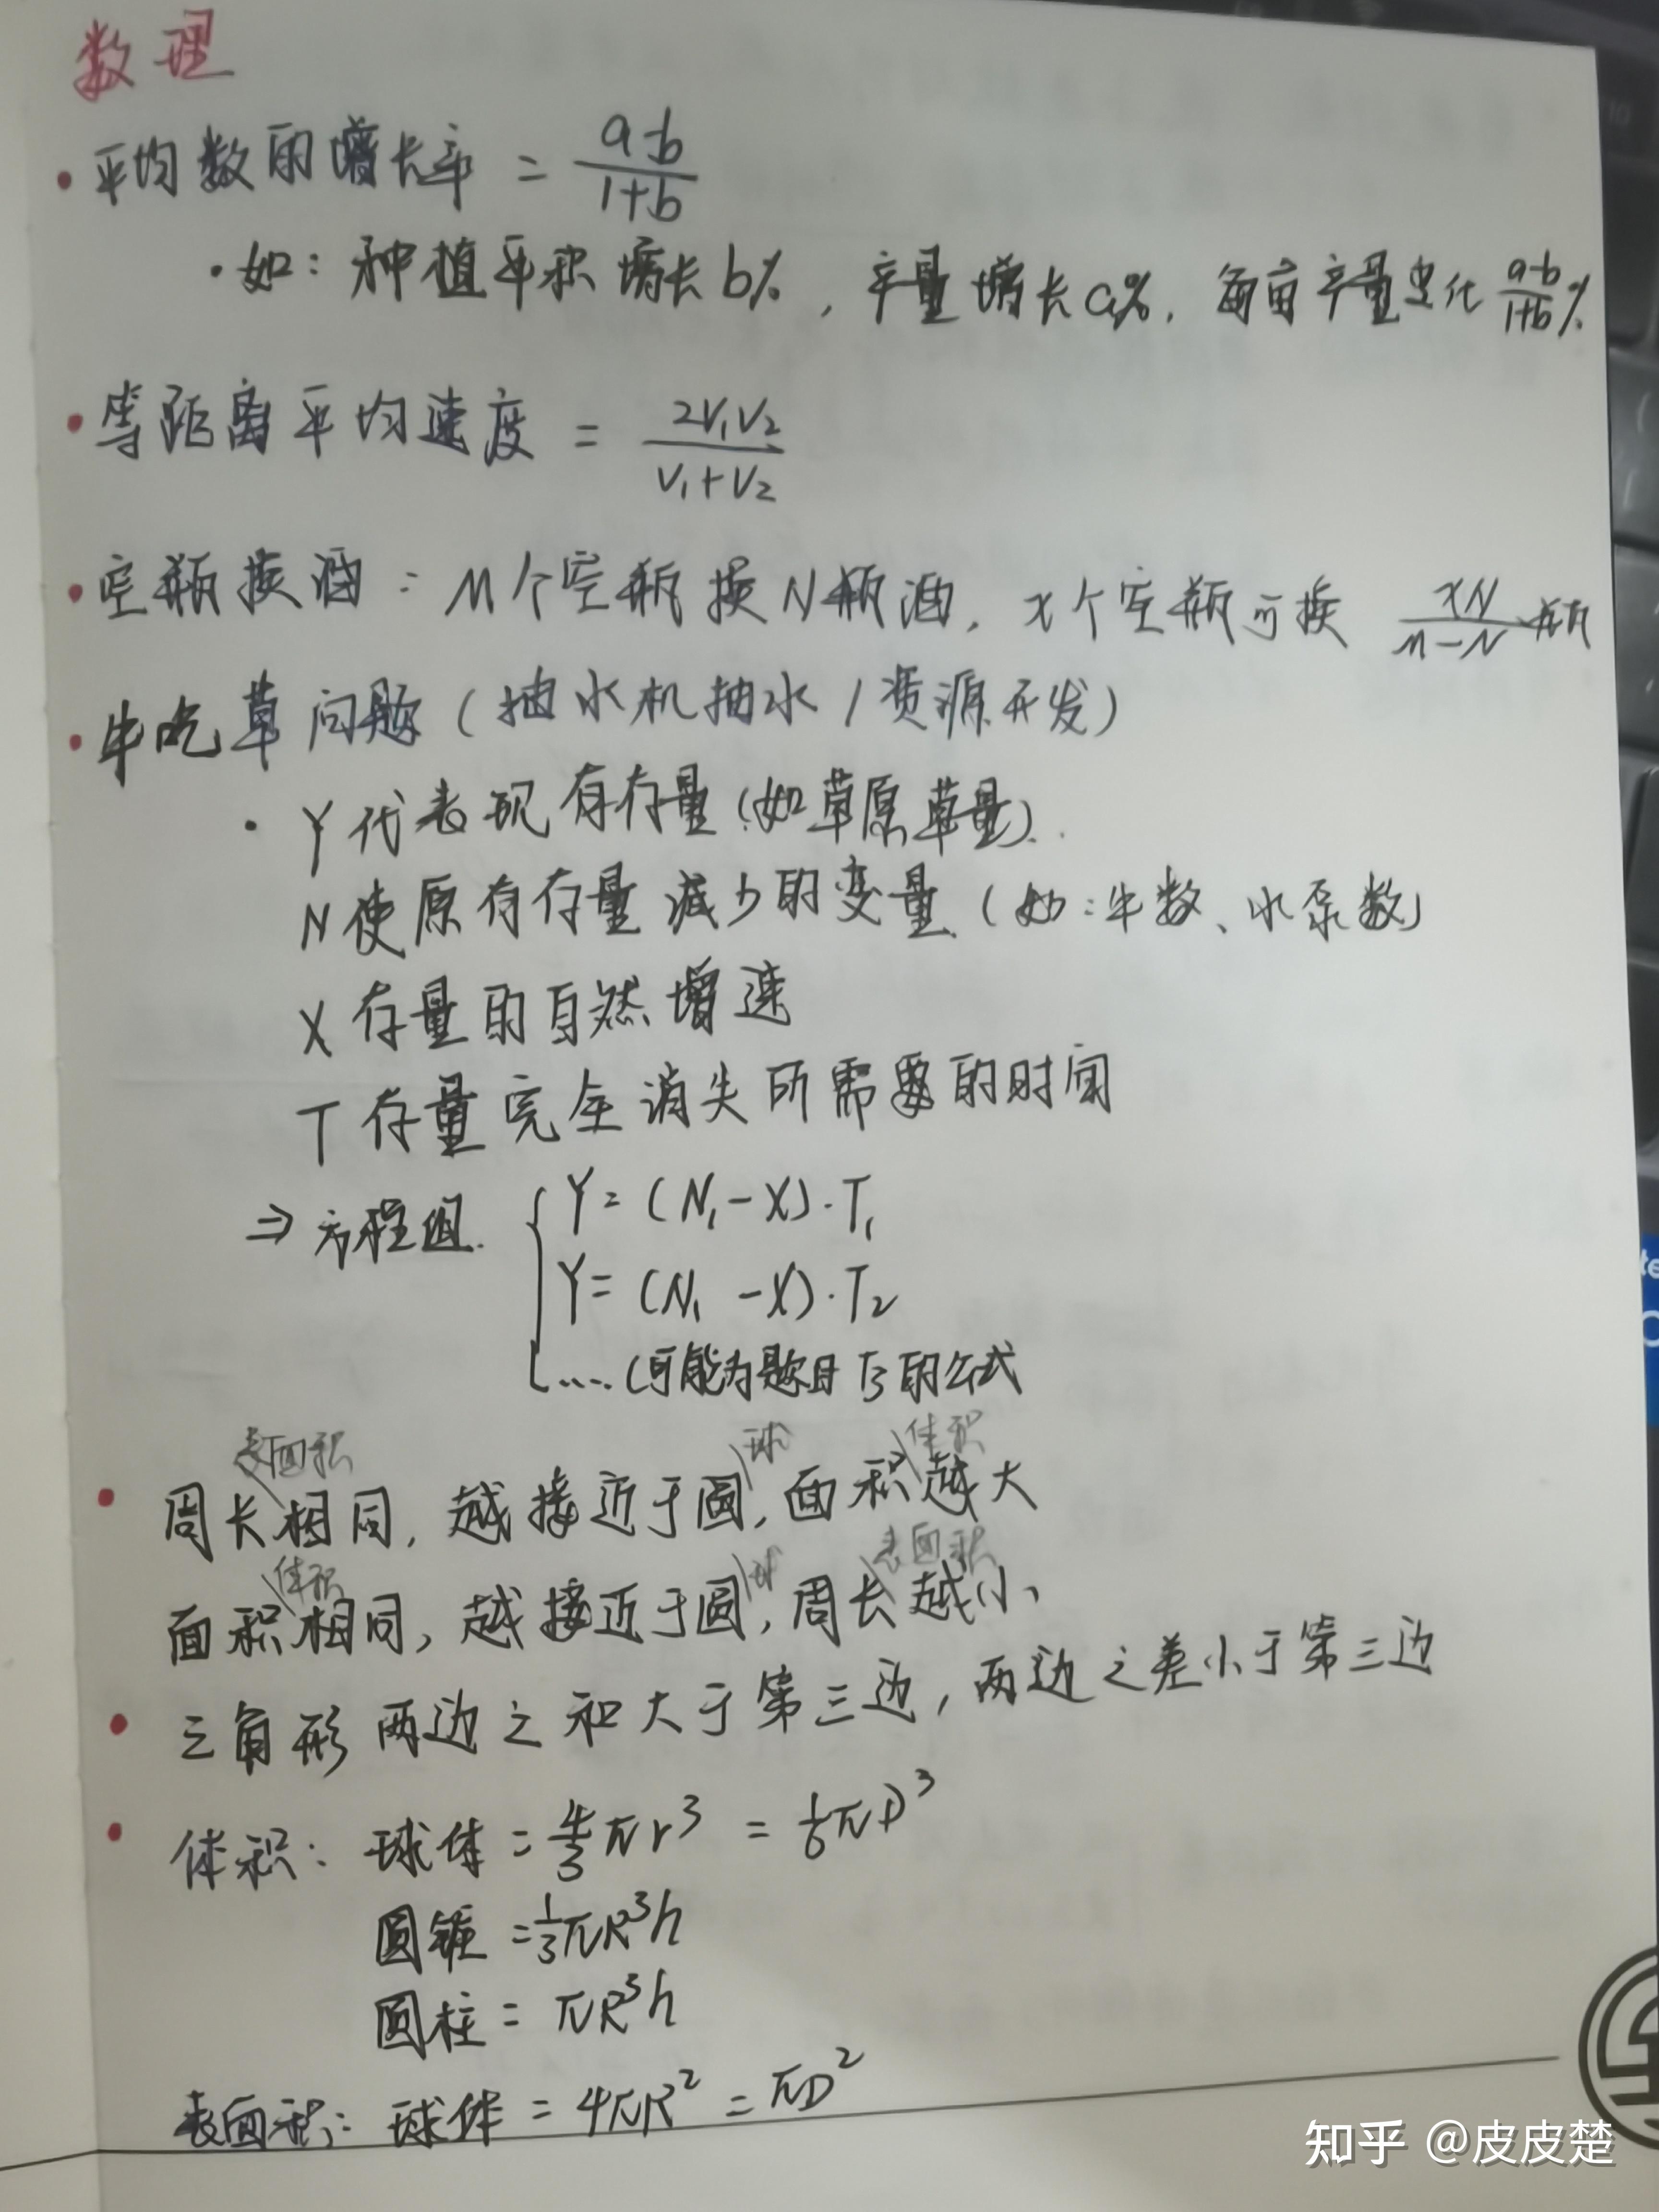 数理
·平均数的增长率 = (a-b)/(1+b)
·如：种植平积增长b%，产量增长a%，每亩产量变化 (a-b)/(1+b)%
·等距离平均速度 = 2V₁V₂/(V₁+V₂)
·空瓶换酒：M个空瓶换N瓶酒，x个空瓶可换 xN/(M-N) 瓶
·牛吃草问题（抽水机抽水/资源开发）
·Y代表现有存量（如草原草量）.
N使原有存量减少的变量（如：牛数、水泵数）
X存量的自然增速
T存量完全消失所需要的时间
⇒方程组. { Y=(N₁-X)·T₁
Y=(N₁-X)·T₂
....（可能为题目T₃的公式
表面积 球 体积
·周长相同，越接近于圆，面积越大
体积 球 表面积
面积相同，越接近于圆，周长越小
·三角形两边之和大于第三边，两边之差小于第三边
·体积：球体=4/3πr³=1/6πD³
圆锥=1/3πR³h
圆柱=πR³h
表面积：球体=4πR²=πD²
te
知乎 @皮皮楚